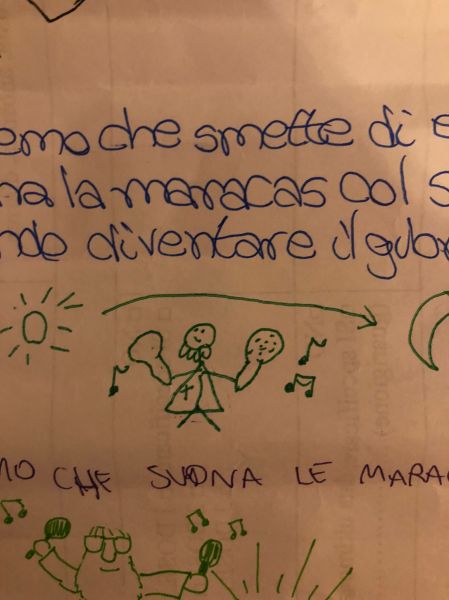 emo che smette di e
na la maracas col s
ndo diventare il
MO CHE SUONA LE MARA